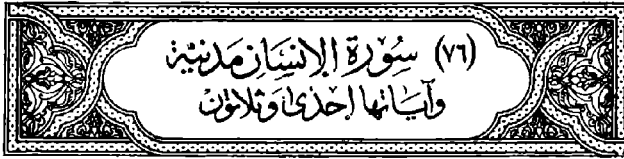 (٧٦) سُورَةِ الإِنسَانِ مَدَنِيَّة
وَآيَاتُهَا إِحْدَىٰ وَثَلَاثُونَ